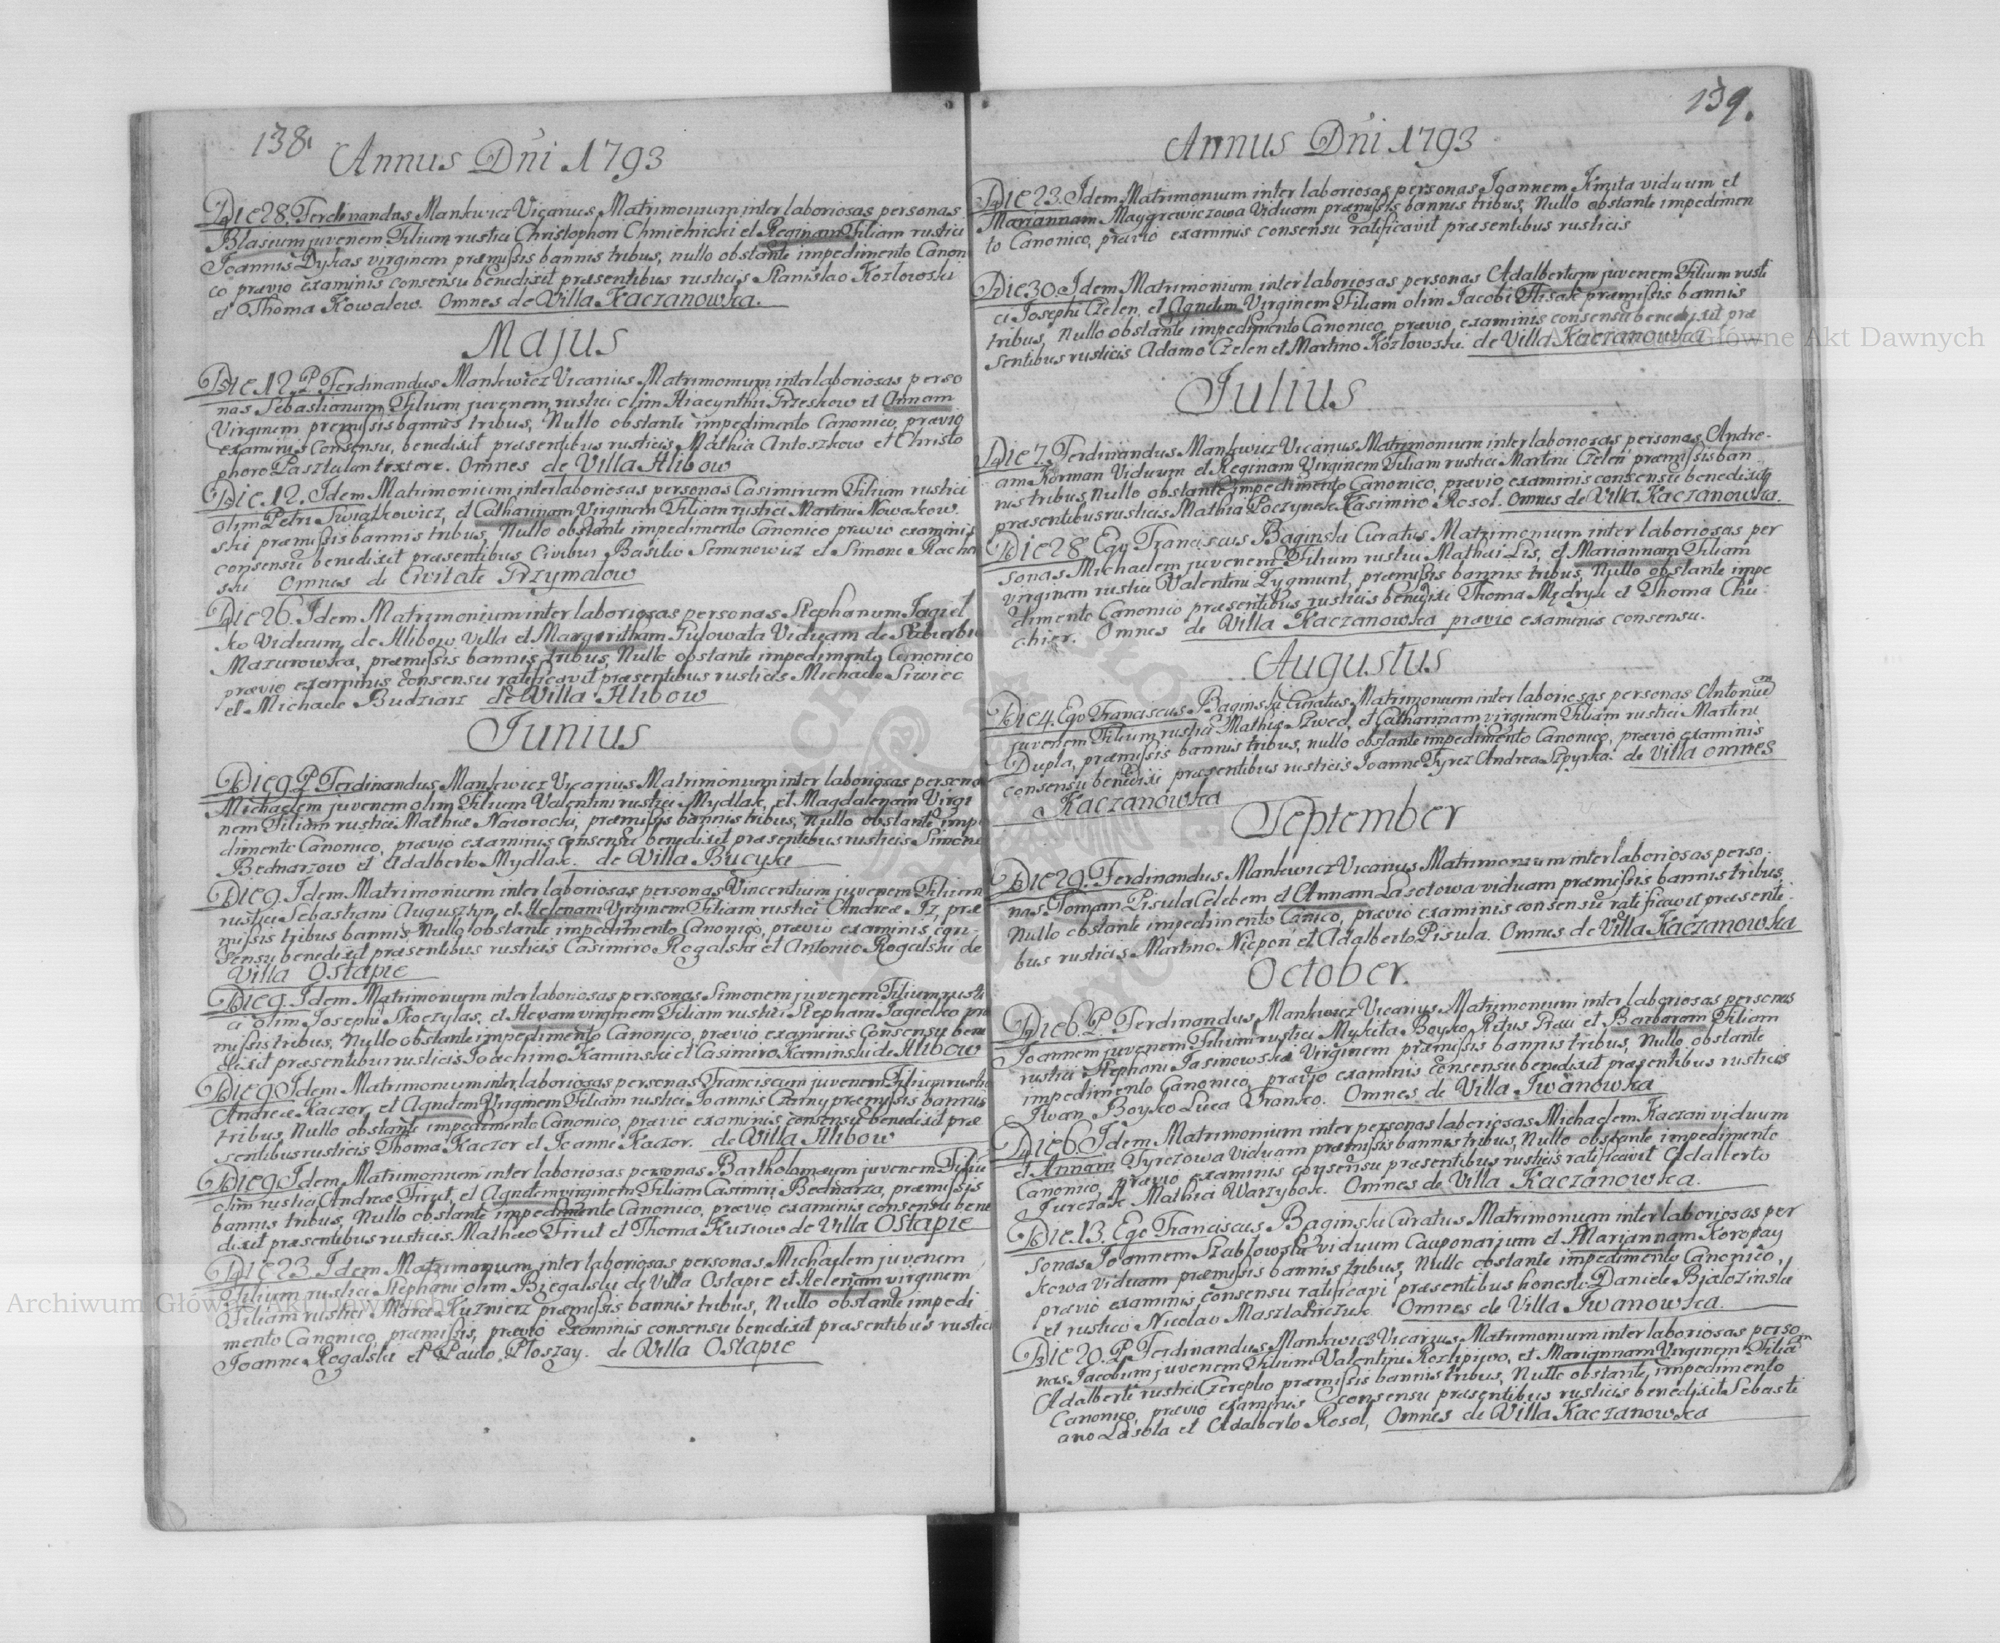 138.
Annus Dni 1793
Die 28. Ferdinandus Mankwicz Vicarius Matrimonium inter laboriosas personas
Blasium juvenem Filium rustici Christophori Chmielnicki et Reginam Filiam rustici
Joannis Dykas virginem præmissis bannis tribus, nullo obstante impedimento Canoni
co prævio examinis consensu benedixit præsentibus rusticis Stanislao Kozłowski
et Thoma Kowalow. Omnes de Villa Kaczanowka.
Majus
Die 12 P. Ferdinandus Mankwicz Vicarius Matrimonium inter laboriosas perso
nas Sebastianum Filium juvenem rustici olim Hiacynthi Przeskow et Annam
Virginem premissis bannis tribus, Nullo obstante impedimento Canonico, prævio
examinis Consensu, benedixit præsentibus rusticis Mathia Antoszkow et Christo
phoro Pasztulan textore. Omnes de Villa Hlibow
Die 12. Idem Matrimonium inter laboriosas personas Casimirum Filium rustici
olim Petri Swiązkowicz, et Catharinam Virginem Filiam rustici Martini Nowakow
ski præmissis bannis tribus, Nullo obstante impedimento Canonico prævio examinis
consensu benedixit præsentibus Civibus Basilio Semenowicz et Simone
ski Omnes de Civitate Przymalow
Die 26. Idem Matrimonium inter laboriosas personas Stephanum Jagiel
ko Viduum de Hlibow Villa et Margaritham Viduam de Suburbio
Mazurowka, præmissis bannis tribus, Nullo obstante impedimento Canonico
prævio examinis consensu ratificavit præsentibus rusticis Michaele Siwiec
et Michaele Budziarz de Villa Hlibow
Junius
Die 9 P. Ferdinandus Mankwicz Vicarius Matrimonium inter laboriosas personas
Michaelem juvenem olim Filium Valentini rustici Mydlak, et Magdalenam Virgi
nem Filiam rustici Mathiæ Nawrocki, præmissis bannis tribus, Nullo obstante impe
dimento Canonico, prævio examinis consensu benedixit præsentibus rusticis Simone
Bednarzow et Adalberto Mydlak. de Villa Bucyke
Die 9. Idem Matrimonium inter laboriosas personas Vincentium juvenem Filium
rustici Sebastiani Augusztyn, et Helenam Virginem Filiam rustici Andreæ Iz, præ
missis tribus bannis Nullo obstante impedimento Canonico, prævio examinis con
sensu benedixit præsentibus rusticis Casimiro Rogalski et Antonio Rogalski de
Villa Ostapie
Die 9. Idem Matrimonium inter laboriosas personas Simonem juvenem Filium rusti
ci olim Josephi Skoczylas, et Hevam virginem Filiam rustici Stephani Jagielko præ
missis tribus, Nullo obstante impedimento Canonico, prævio examinis Consensu bene
dixit præsentibus rusticis Joachimo Kaminski et Casimiro Kaminski de Hlibow
Die 9 Idem Matrimonium inter laboriosas personas Franciscum juvenem Filium rustici
Andreæ Kaczor, et Agnetem Virginem Filiam rustici Joannis Czarny præmissis bannis
tribus, Nullo obstante impedimento Canonico, prævio examinis consensu benedixit præ
sentibus rusticis Thoma Kaczor et Joanne Kaczor. de Villa Hlibow
Die 9 Idem Matrimonium inter laboriosas personas Bartholomæum juvenem Filiu
olim rustici Andreæ Firut, et Agnetem virginem Filiam Casimiri Bednarza, præmissis
bannis tribus, Nullo obstante impedimento Canonico, prævio examinis consensu bene
dixit præsentibus rusticis Mathæo Firut et Thoma Kuziow de Villa Ostapie
Die 23 Idem Matrimonium inter laboriosas personas Michaelem juvenem
Filium rustici Stephani olim Biegalski de Villa Ostapie et Helenam virginem
Filiam rustici Marci Kuzmierz præmissis bannis tribus, Nullo obstante impedi
mento Canonico, præmissis, prævio examinis consensu benedixit præsentibus rusticis
Joanne Rogalski et Paulo Płoszay. de Villa Ostapie
139.
Annus Dni 1793
Die 23. Idem Matrimonium inter laboriosas personas Joannem Kmita viduum et
Mariannam Maygrewiczowa Viduam præmissis bannis tribus, Nullo obstante impedimen
to Canonico, prævio examinis consensu ratificavit præsentibus rusticis
Die 30. Idem Matrimonium inter laboriosas personas Adalbertum juvenem Filium rusti
ci Josephi Czelen, et Agnetem Virginem Filiam olim Jacobi Flisak præmissis bannis
tribus, Nullo obstante impedimento Canonico, prævio, examinis consensu benedixit præ
sentibus rusticis Adamo Czelen et Martino Kozłowski. de Villa Kaczanowka
Julius
Die 7. Ferdinandus Mankwicz Vicarius Matrimonium inter laboriosas personas Andre-
am Korman Viduum et Reginam Virginem Filiam rustici Martini Czelen, præmissis ban
nis tribus, Nullo obstante impedimento Canonico, prævio examinis consensu benedixit
præsentibus rusticis Mathia Poczynek Kasimiro Rosol. Omnes de Villa Kaczanowka.
Die 28. Ego Franciscus Baginski Curatus Matrimonium inter laboriosas per
sonas Michaelem juvenem Filium rustici Mathæi Lis, et Mariannam Filiam
virginem rustici Valentini Zygmunt, præmissis bannis tribus, Nullo obstante impe
dimento Canonico præsentibus rusticis benedixi Thoma Mędryk et Thoma Chu
chier. Omnes de Villa Kaczanowka prævio examinis consensu.
Augustus
Die 4. Ego Franciscus Baginski Curatus Matrimonium inter laboriosas personas Antonium
juvenem Filium rustici Mathiæ Szwed, et Catharinam virginem Filiam rustici Martini
Dupla, præmissis bannis tribus, nullo obstante impedimento Canonico, prævio examinis
consensu benedixi præsentibus rusticis Joanne Tyrez Andrea Szpyrka. de Villa omnes
Kaczanowka
September
Die 29. Ferdinandus Mankwicz Vicarius Matrimonium inter laboriosas perso.
nas Toman Pisula Celebem et Annam Lazotowa viduam præmissis bannis tribus,
Nullo obstante impedimento Canico, prævio examinis consensu ratificavit præsenti
bus rusticis Martino Niepon et Adalberto Pisula. Omnes de Villa Kaczanowka
October.
Die 6. P. Ferdinandus Mankwicz Vicarius Matrimonium inter laboriosas personas
Joannem juvenem Filium rustici Mykita Boyko Ritus et Barbaram Filiam
rustici Stephani Jasinowski Virginem præmissis bannis tribus, Nullo obstante
impedimento Canonico, prævio examinis consensu benedixit præsentibus rusticis
Iwan Boyko Luca Franko. Omnes de Villa Iwanowka
Die 6. Idem Matrimonium inter personas laboriosas Michaelem Kaczan viduum
et Annam Tyrezowa Viduam præmissis bannis tribus, Nullo obstante impedimento
Canonico, prævio examinis consensu præsentibus rusticis ratificavit Adalberto
Jurczak Mathia Warzybok. Omnes de Villa Kaczanowka.
Die 13. Ego Franciscus Baginski Curatus Matrimonium inter laboriosas per
sonas Joannem Szablowski viduum Cauponarium et Mariannam Koropay
kowa viduam præmissis bannis tribus, Nullo obstante impedimento Canonico,
prævio examinis consensu ratificavi præsentibus honesto Daniele Bialozinski
et rustico Nicolao Masztalirczuk Omnes de Villa Iwanowka.
Die 20. P. Ferdinandus Mankwicz Vicarius Matrimonium inter laboriosas perso
nas Jacobum juvenem Filium Valentini Rozlipiwo, et Mariannam Virginem Filiam
Adalberti rustici Czerepko præmissis bannis tribus, Nullo obstante impedimento
Canonico, prævio examinis consensu præsentibus rusticis benedixit Sebasti
ano Lasota et Adalberto Rosol, Omnes de Villa Kaczanowka
Archiwum Główne Akt Dawnych
Archiwum Główne Akt Dawnych